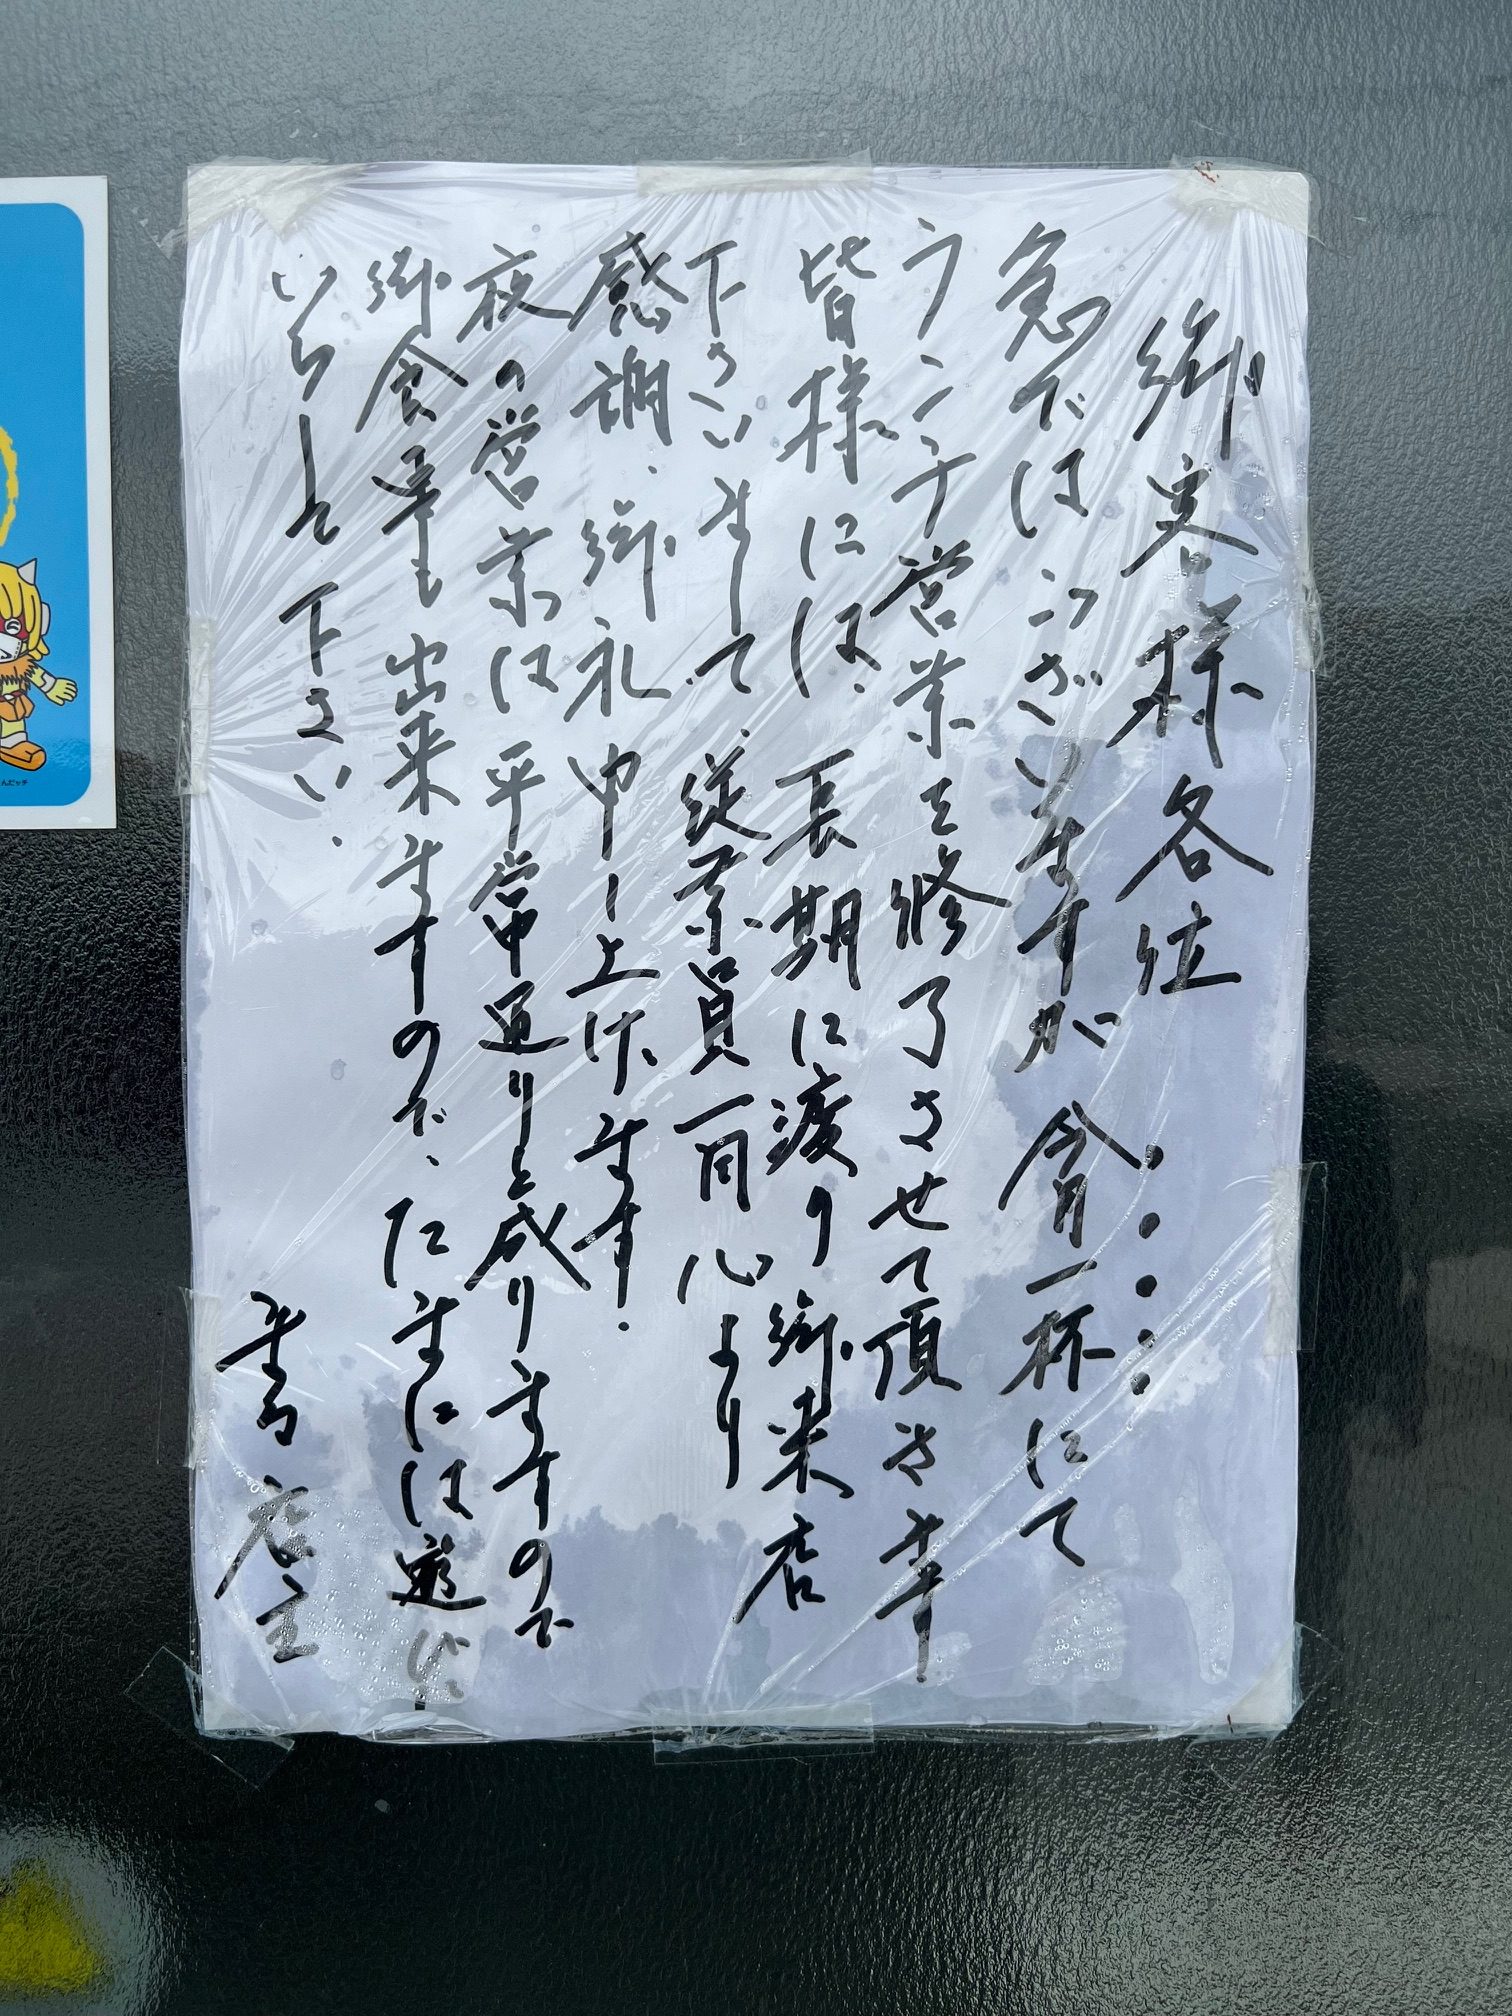 御客様各位 ・・・・・
急ではございますが 今月一杯にて
ランチ営業を修了させて頂きます
皆様には、長期に渡り御来店
下さいまして、従業員一同心より
感謝、御礼申し上げます。
夜の営業は平常通りと成りますので
御食事も出来ますので、たまには遊びに
いらして下さい。
店主
んだッチ